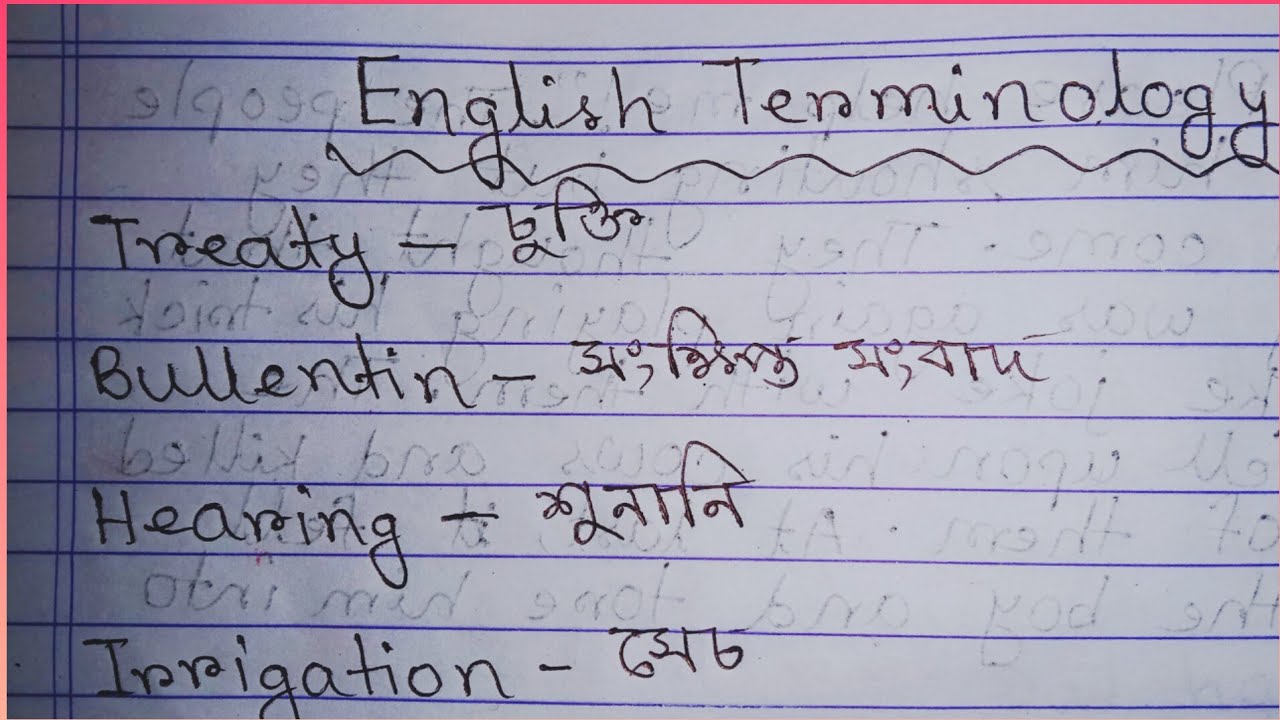 English Terminology
Treaty – চুক্তি
Bullentin – সংক্ষিপ্ত সংবাদ
Hearing – শূনানি
Irrigation – সেচ